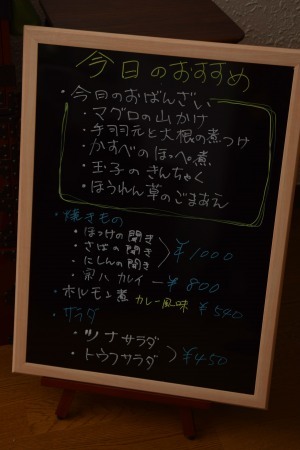 今日のおすすめ
・今日のおばんざい
・マグロの山かけ
・手羽元と大根の煮つけ
・かすべのほっぺ煮
・玉子のきんちゃく
・ほうれん草のごまあえ
・焼きもの
・ほっけの開き
・さばの開き
・にしんの開き
¥1000
・宗八カレイ ー ¥800
・ホルモン煮 カレー風味 ¥540
・サラダ
・ツナサラダ
・トウフサラダ
¥450